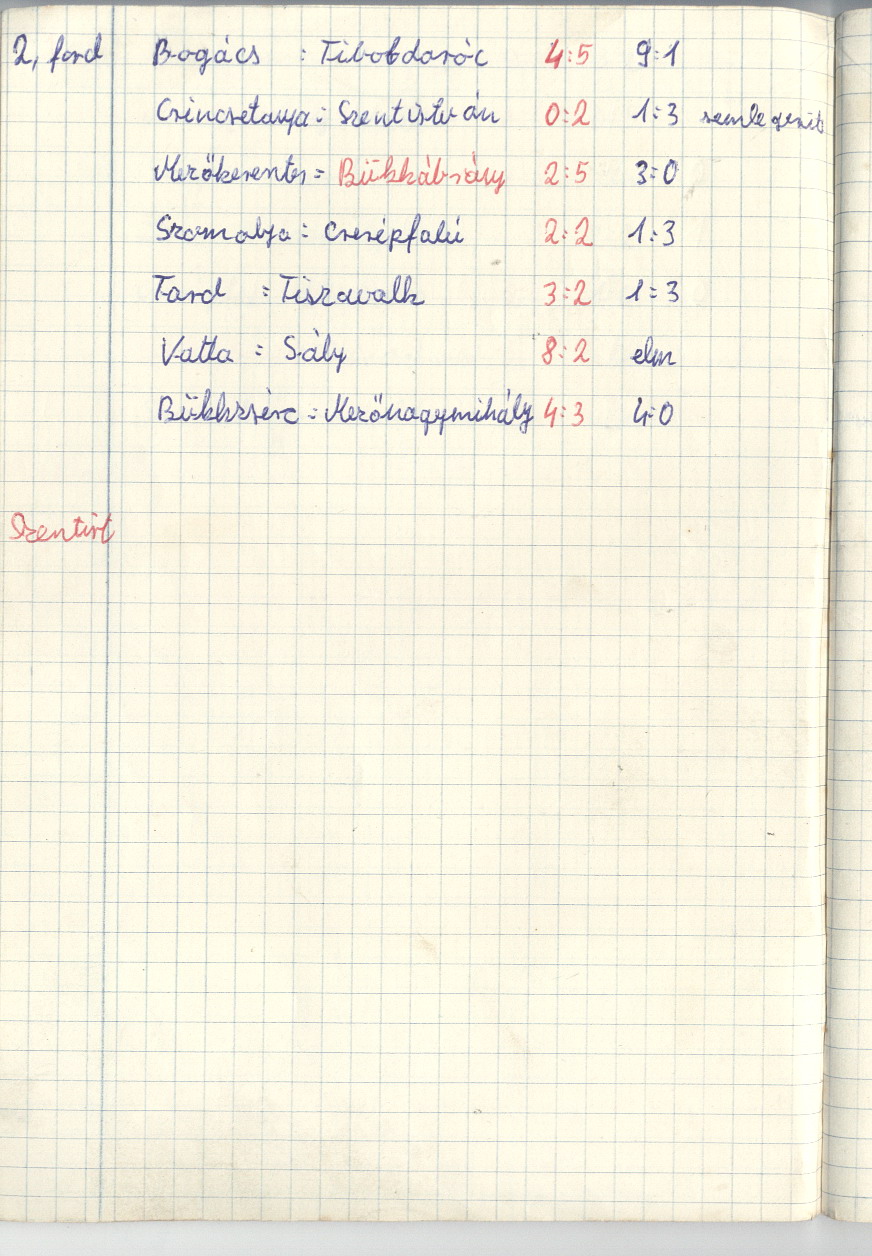 2, ford Bogács : Tibolddaróc 4:5 9:1
Csincsetanya : Szentistván 0:2 1:3
Mezőkeresztes = Bükkábrány 2:5 3:0
Szomolya : Cserépfalú 2:2 1:3
Tard = Tiszavalk 3:2 1:3
Vatta = Sály 8:2 elm
Bükkzsérc = Mezőnagymihály 4:3 4:0
Szentist